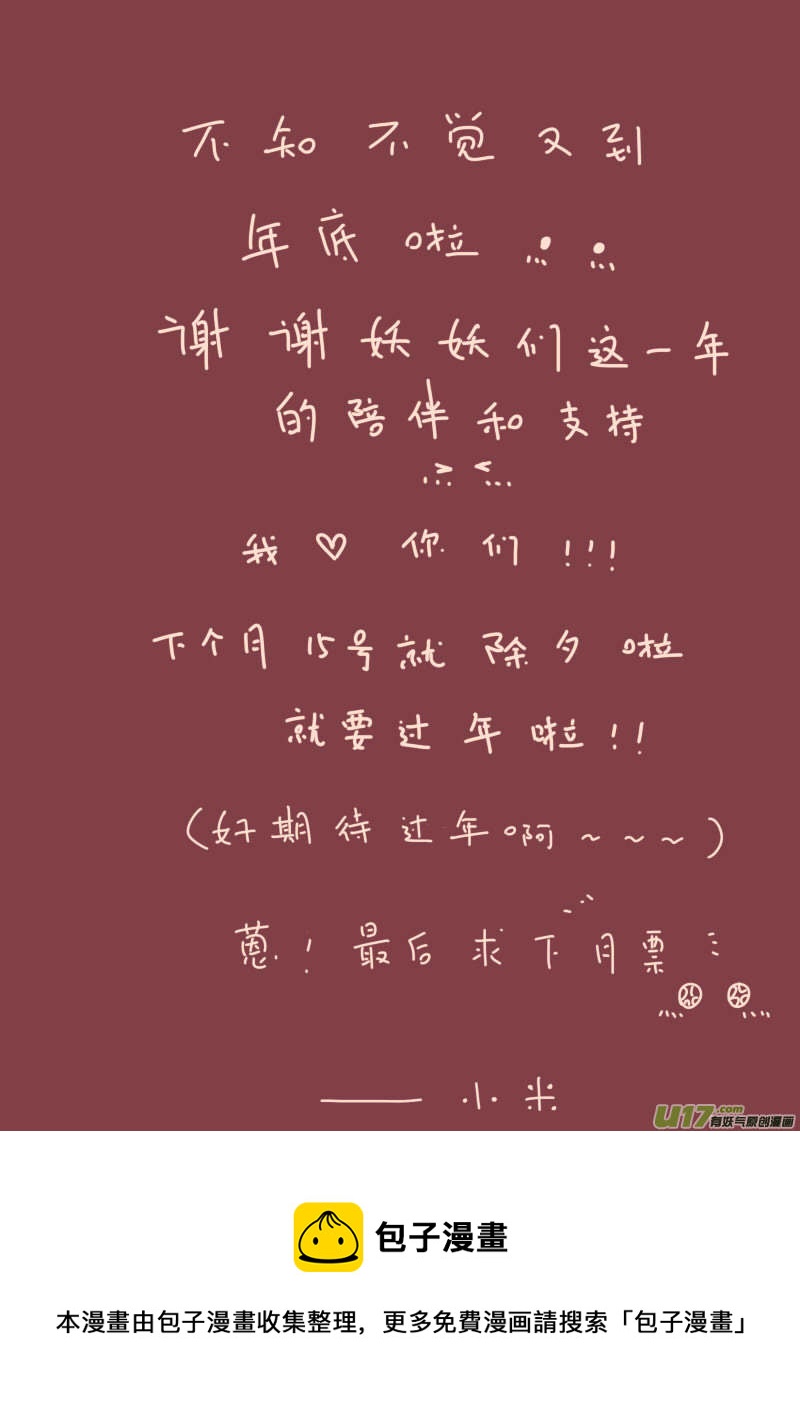 不知不觉又到
年底啦
谢谢妖妖们这一年
的陪伴和支持
我♡你们!!!
下个月15号就除夕啦
就要过年啦!!
(好期待过年啊~~~)
蒽!最后求下月票
——小米
U17.com
有妖气原创漫画
包子漫畫
本漫畫由包子漫畫收集整理,更多免費漫画請搜索「包子漫畫」